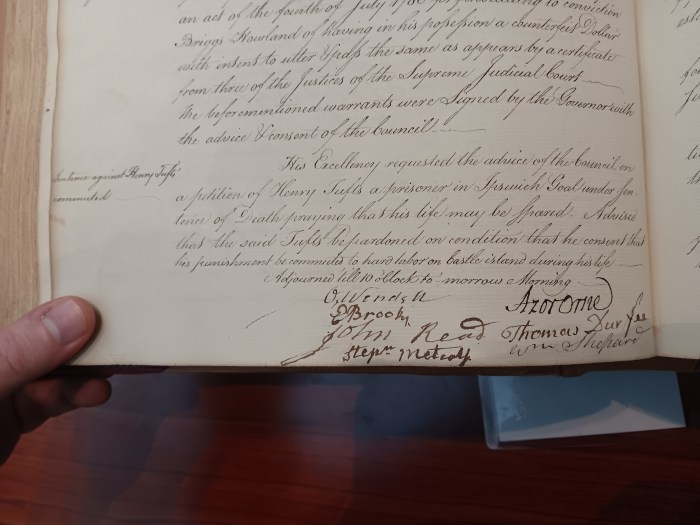 an act of the fourth of July 1786 for prosecuting to conviction
Briggs Howland of having in his possession a counterfeit Dollar
with intent to utter & pass the same as appears by a certificate
from three of the Justices of the Supreme Judicial Court
The beforementioned warrants were signed by the Governor with
the advice & consent of the Council
His Excellency requested the advice of the Council on
Sentence against Henry Tufts
commuted
a petition of Henry Tufts a prisoner in Ipswich Goal under sen
tence of Death praying that his life may be spared. Advised
that the said Tufts be pardoned on condition that he consent that
his punishment be commuted to hard labor on Castle island during his life
Adjourned till 10 oClock to-morrow Morning
O. Wendell
Azor Orne
E Brooks
John Read
Thomas Durfee
Wm Shepard
Stepn Metcalf